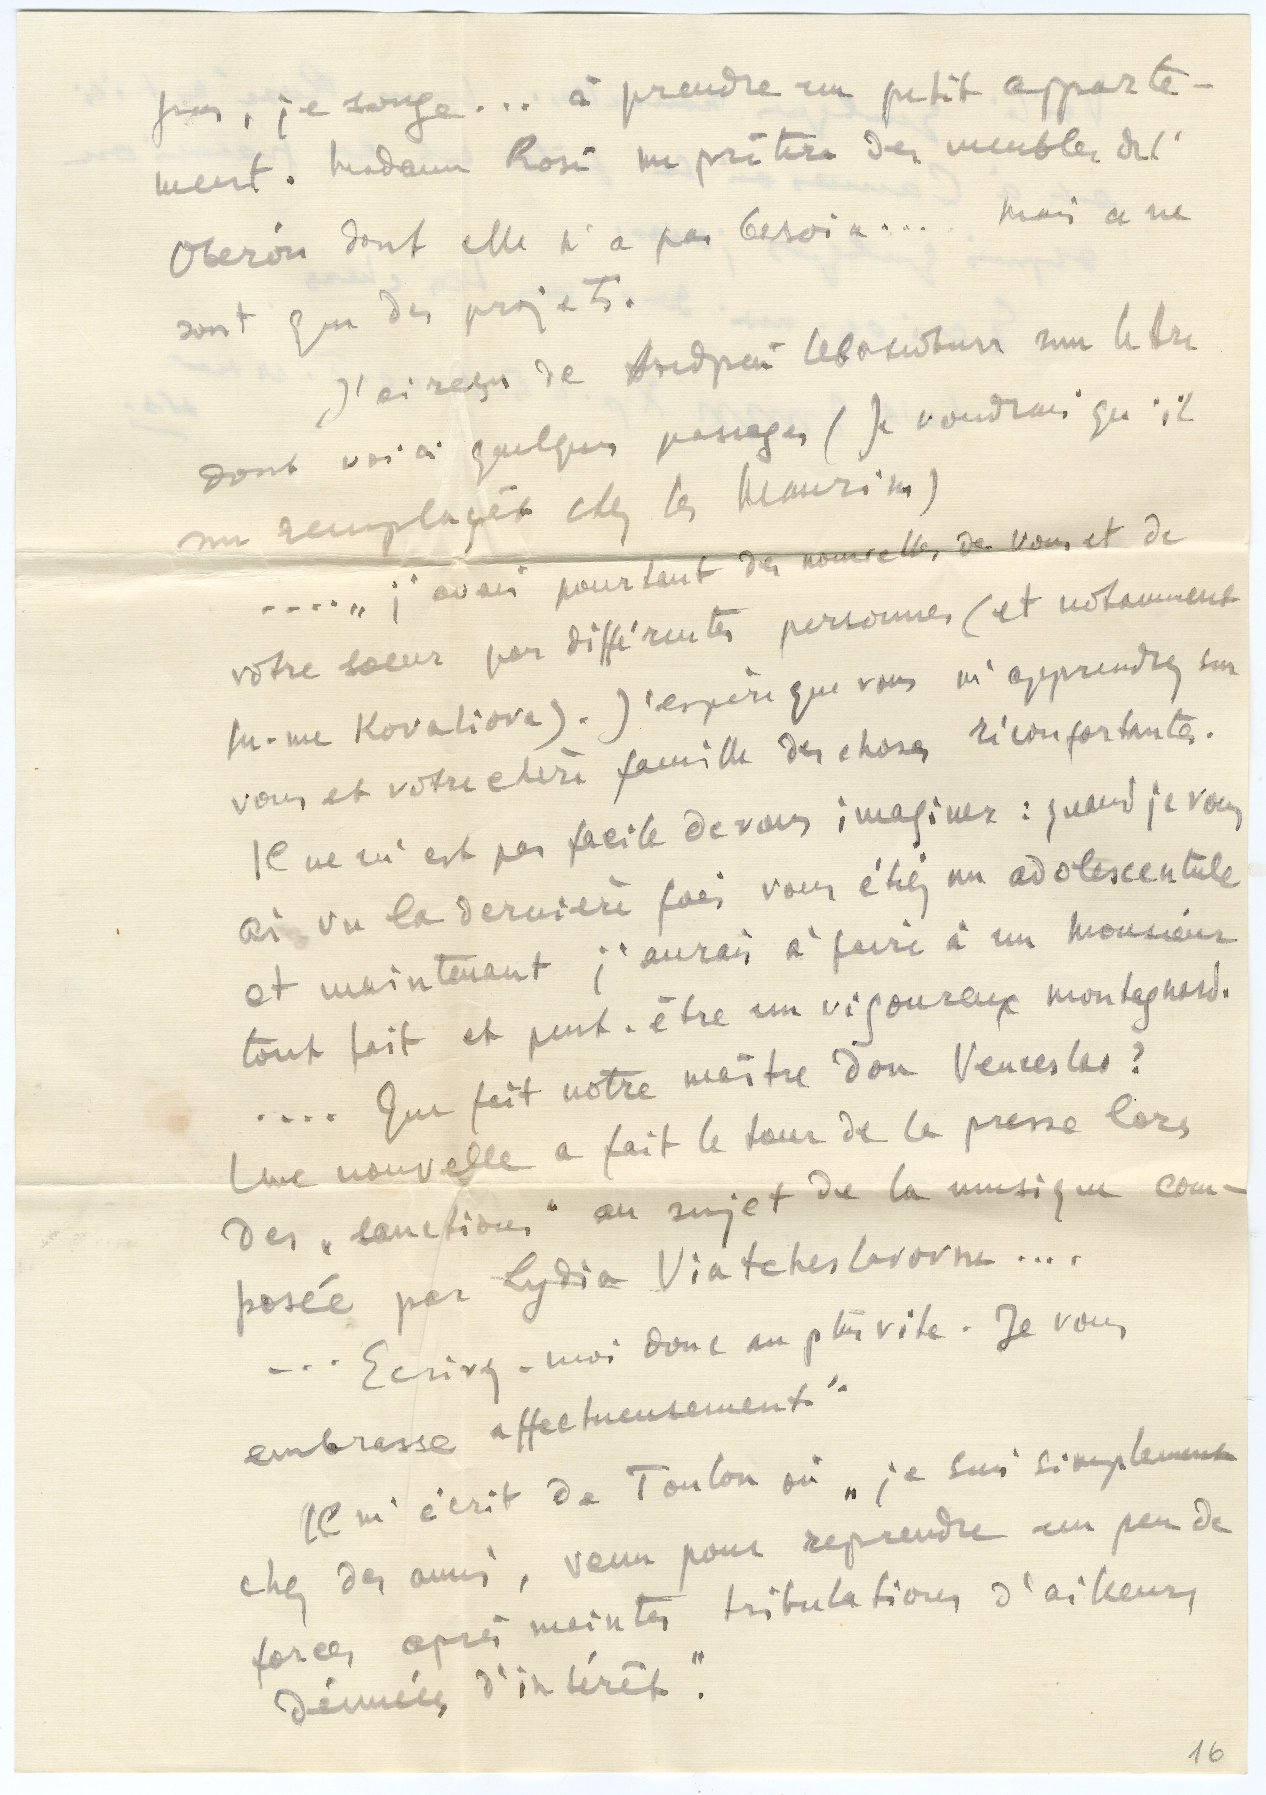 pas, je songe... à prendre un petit apparte-
ment. Madame Rosé me prêtera des meubles de l'
Oberon dont elle n'a pas besoin.... Mais ce ne
sont que des projets.
J'ai reçu de une lettre
dont voici quelques passages (Je voudrais qu'il
me remplaçât chez les Maurins)
.... „j'avais pourtant des nouvelles de vous et de
votre soeur par différentes personnes (et notamment
M-me Kovaliova). J'espère que vous m'apprendrez sur
vous et votre chère famille des choses réconfortantes.
Il ne m'est pas facile de vous imaginer : quand je vous
ai vu la dernière fois vous étiez un adolescentule
et maintenant j'aurais à faire à un monsieur
tout fait et peut-être un vigoureux montagnard.
.... Que fait notre maître Don Venceslao?
Une nouvelle a fait le tour de la presse lors
des „sanctions" au sujet de la musique com-
posée par Lydia Viatcheslavovna....
... Ecrivez-moi donc au plus vite. Je vous
embrasse affectueusement".
Il m'écrit de Toulon où „je suis simplement
chez des amis, venu pour reprendre un peu de
forces après maintes tribulations d'ailleurs
dénuées d'intérêt".
16